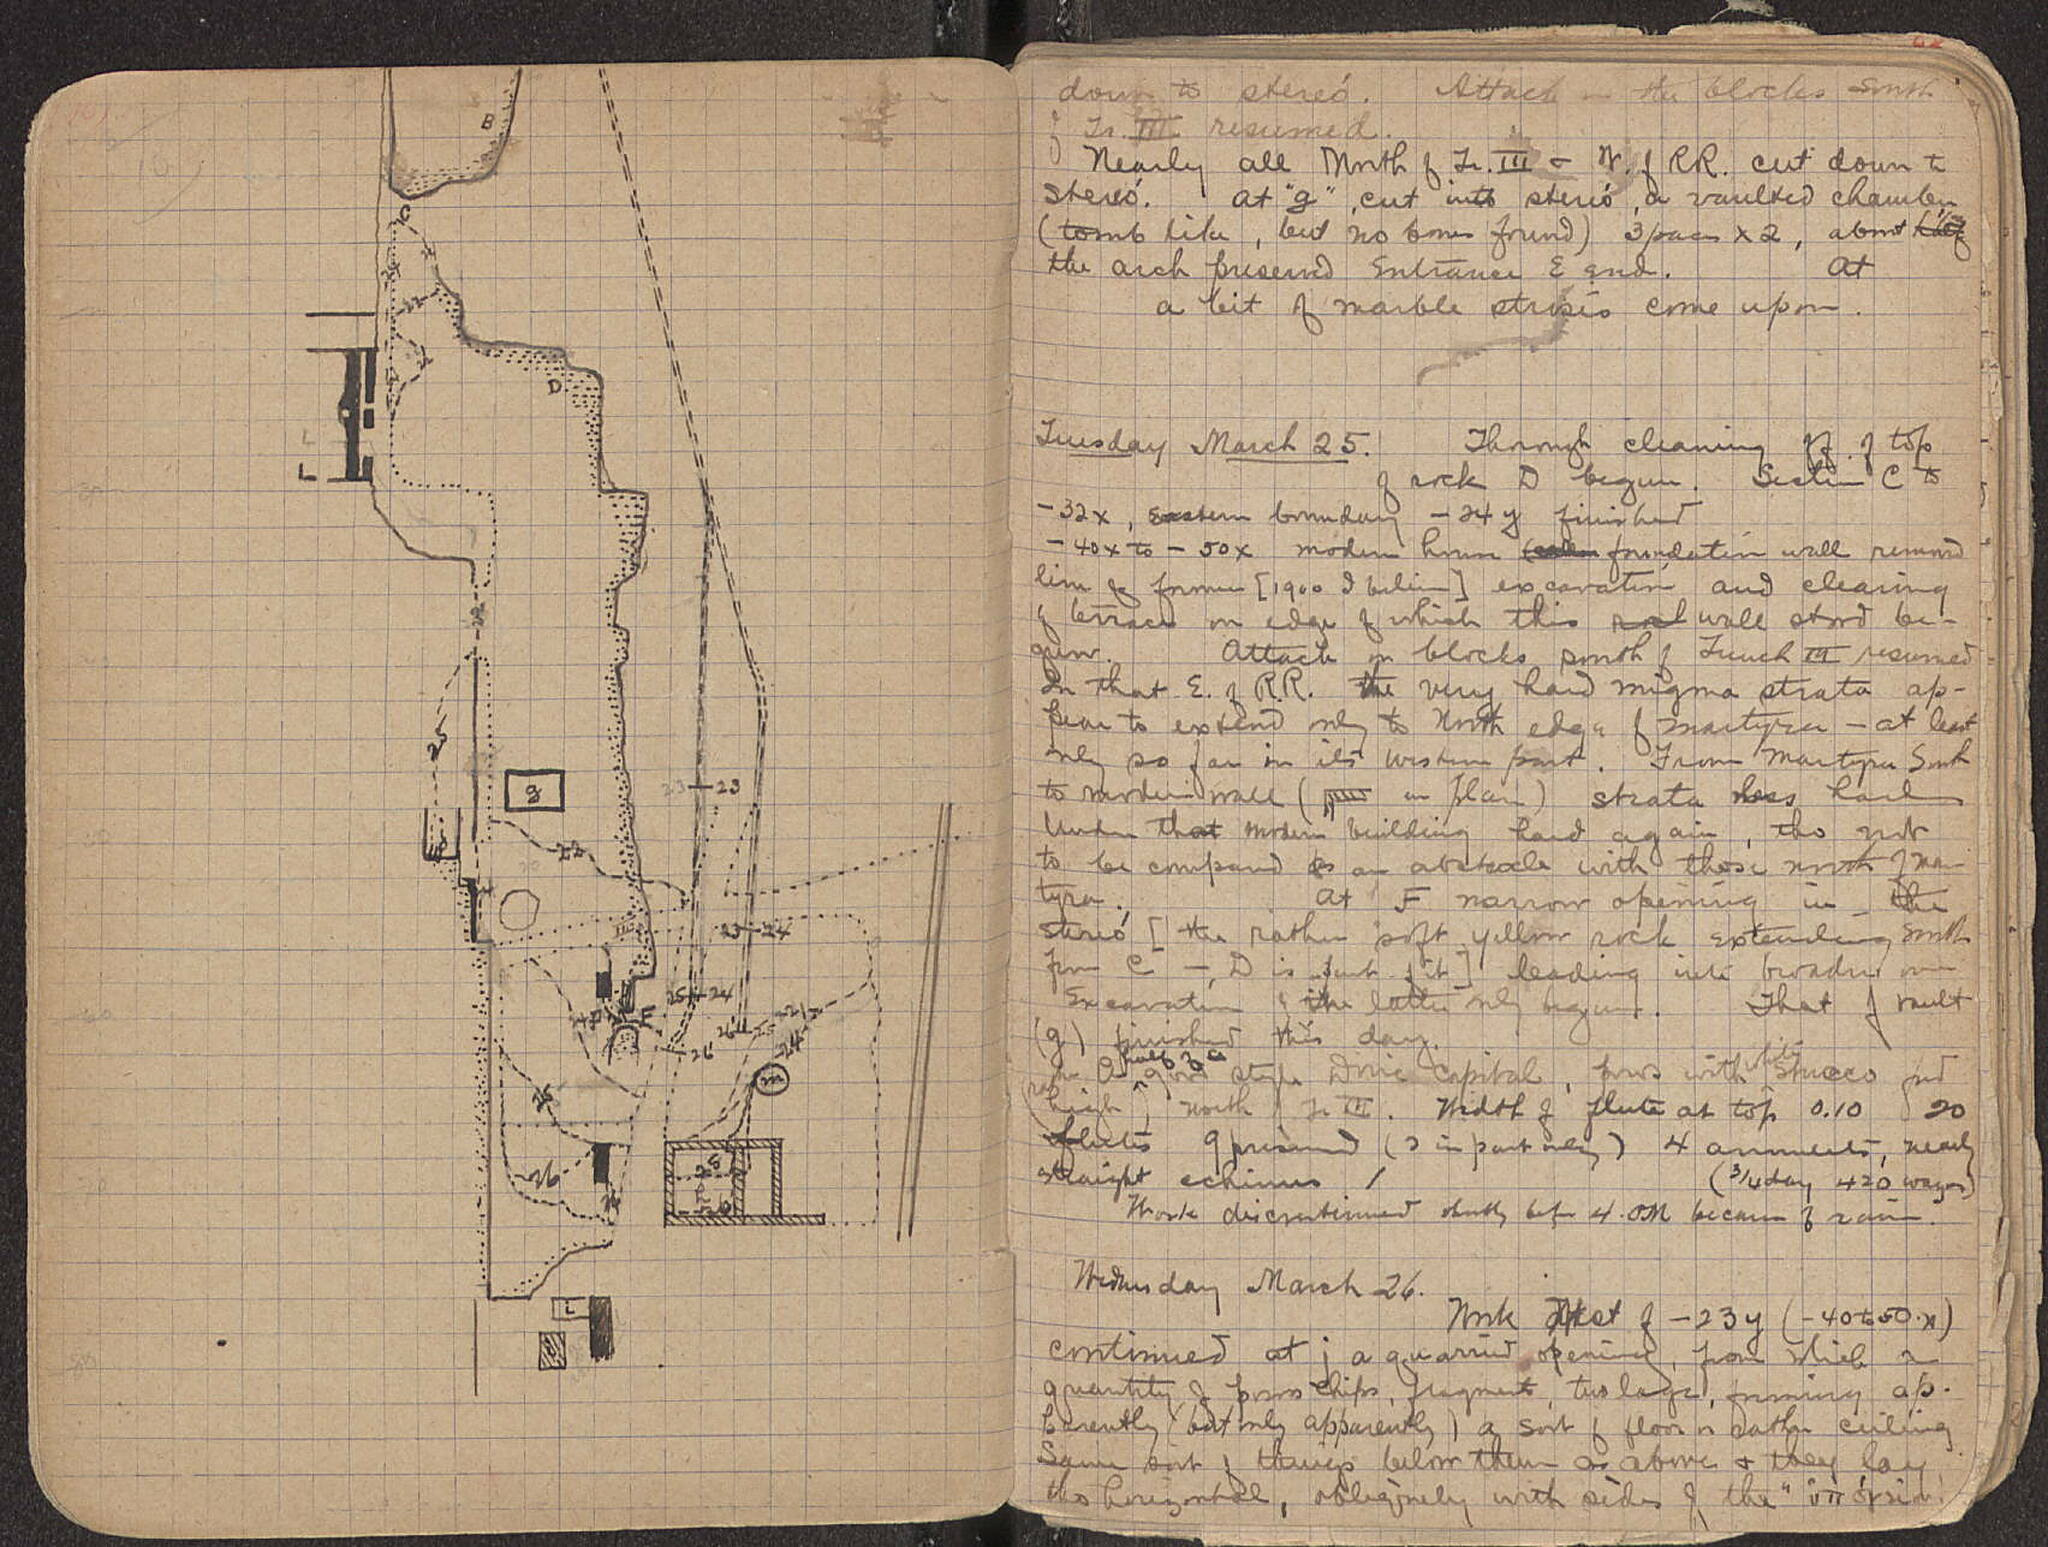 B
C
22
22
D
L
L
22
25
g
23 23
22
23 24
III
25 24
F
26 25 21
24
26
m
25
26
25
26
L
down to stereó. Attack on the blocks South
of Tr. III resumed.
Nearly all North of Tr. III & W. of RR. cut down to
stereó. At "g", cut into stereó, a vaulted chamber
(tomb like, but no bones found) 3 paces x 2, about half
the arch preserved Entrance E end. At
a bit of marble strosis come upon.
Tuesday March 25. Thorough cleaning off of top
of rock D begun. Section C to
-32x, Eastern boundary -24y finished
-40x to -50x modern house foundation wall removed
line of former [1900 I believe] excavation and clearing
of terrace on edge of which this wall stood be-
gun. Attack on blocks south of Trench III resumed
In that E. of RR. the very hard migma strata ap-
pear to extend only to North edge of martyra - at least
only so far in its western part. From Martyra South
to modern wall ( in plan) strata less hard
Under that modern building hard again, tho not
to be compared as an obstacle with those north of mar
tyra. At F narrow opening in the
stereó [the rather soft yellow rock extending South
from C - D is part of it] leading into broader one
Excavation of the latter only begun. That of vault
(g) finished this day.
half of a
A good style Doric capital, poros with white stucco fnd
high north of Tr III. Width of flute at top 0.10 20
flutes 9 preserved (2 in part only) 4 annulets, nearly
straight echinus / (3/4 day 420 wages)
Work discontinued shortly bef. 4. PM because of rain.
Wednesday March 26.
Work West of -23y (-40 to 50.x)
continued at j a quarried opening, from which a
quantity of poros chips, fragments, two large, forming ap-
parently (but only apparently) a sort of floor or rather ceiling
Same sort of things below them as above & they lay
tho horizontal, obliquely with sides of the